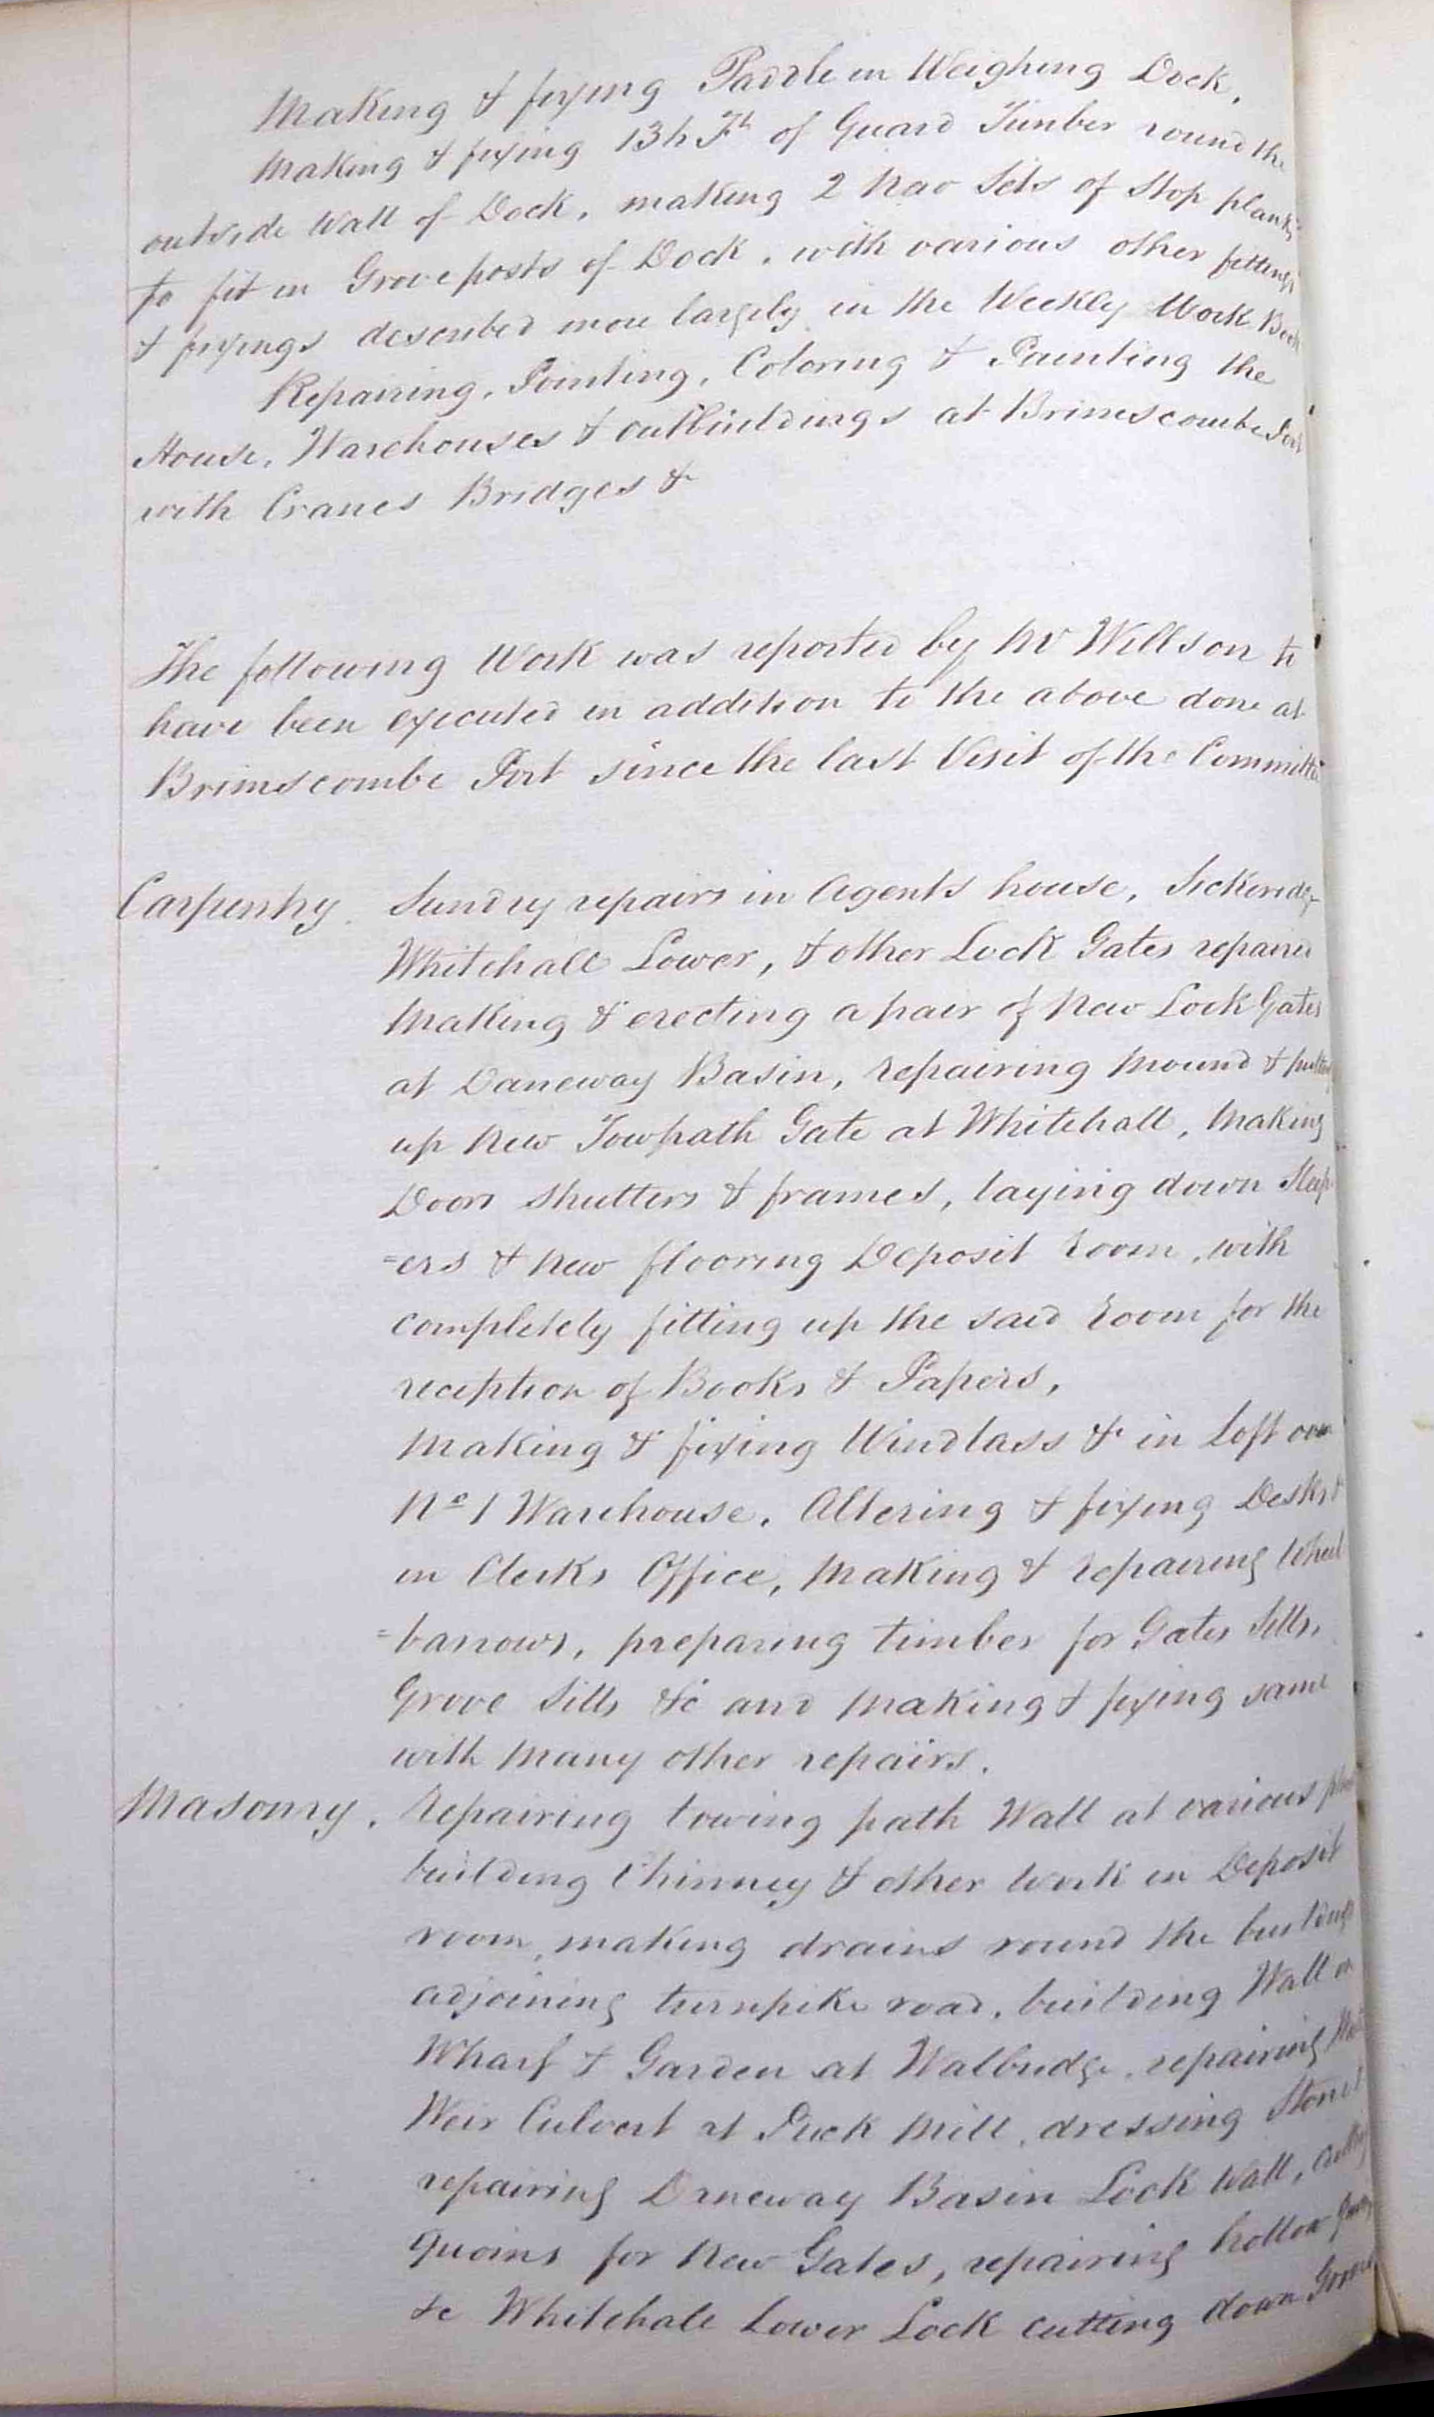 Making & fixing Paddle in Weighing Dock,
Making & fixing 134 Ft of Guard Timber round the
outside Wall of Dock, making 2 New Sets of Stop planks
to fit in Grove posts of Dock, with various other fittings
& fixings described more largely in the Weekly Work Book
Repairing, Pointing, Coloring & Painting the
House, Warehouses & outbuildings at Brimscombe Port
with Cranes Bridges &
The following Work was reported by Mr Willson to
have been executed in addition to the above done at
Brimscombe Port since the last Visit of the Committee
Carpentry. Sundry repairs in Agents house, Sickeridge
Whitehall Lower, & other Lock Gates repaired
Making & erecting a pair of New Lock Gates
at Daneway Basin, repairing Mound & putting
up New Towpath Gate at Whitehall, Making
Doors Shutters & frames, laying down Sleep
=ers & New flooring Deposit Room, with
completely fitting up the said Room for the
reception of Books & Papers,
Making & fixing Windlass & in Loft over
No 1 Warehouse, Altering & fixing Desks &
in Clerks Office, Making & repairing Wheel
=barrows, preparing timber for Gates Sills,
Grove Sills &c and Making & fixing same
with Many other repairs.
Masonry. Repairing towing path Wall at various
building Chimney & other work in Deposit
room, making drains round the buildings
adjoining turnpike road, building Wall on
Wharf & Garden at Walbridge, repairing
Weir Culvert at Puck Mill, dressing Stone &
repairing Daneway Basin Lock Wall, cutting
Quoins for New Gates, repairing hollow
&c Whitehall Lower Lock cutting down